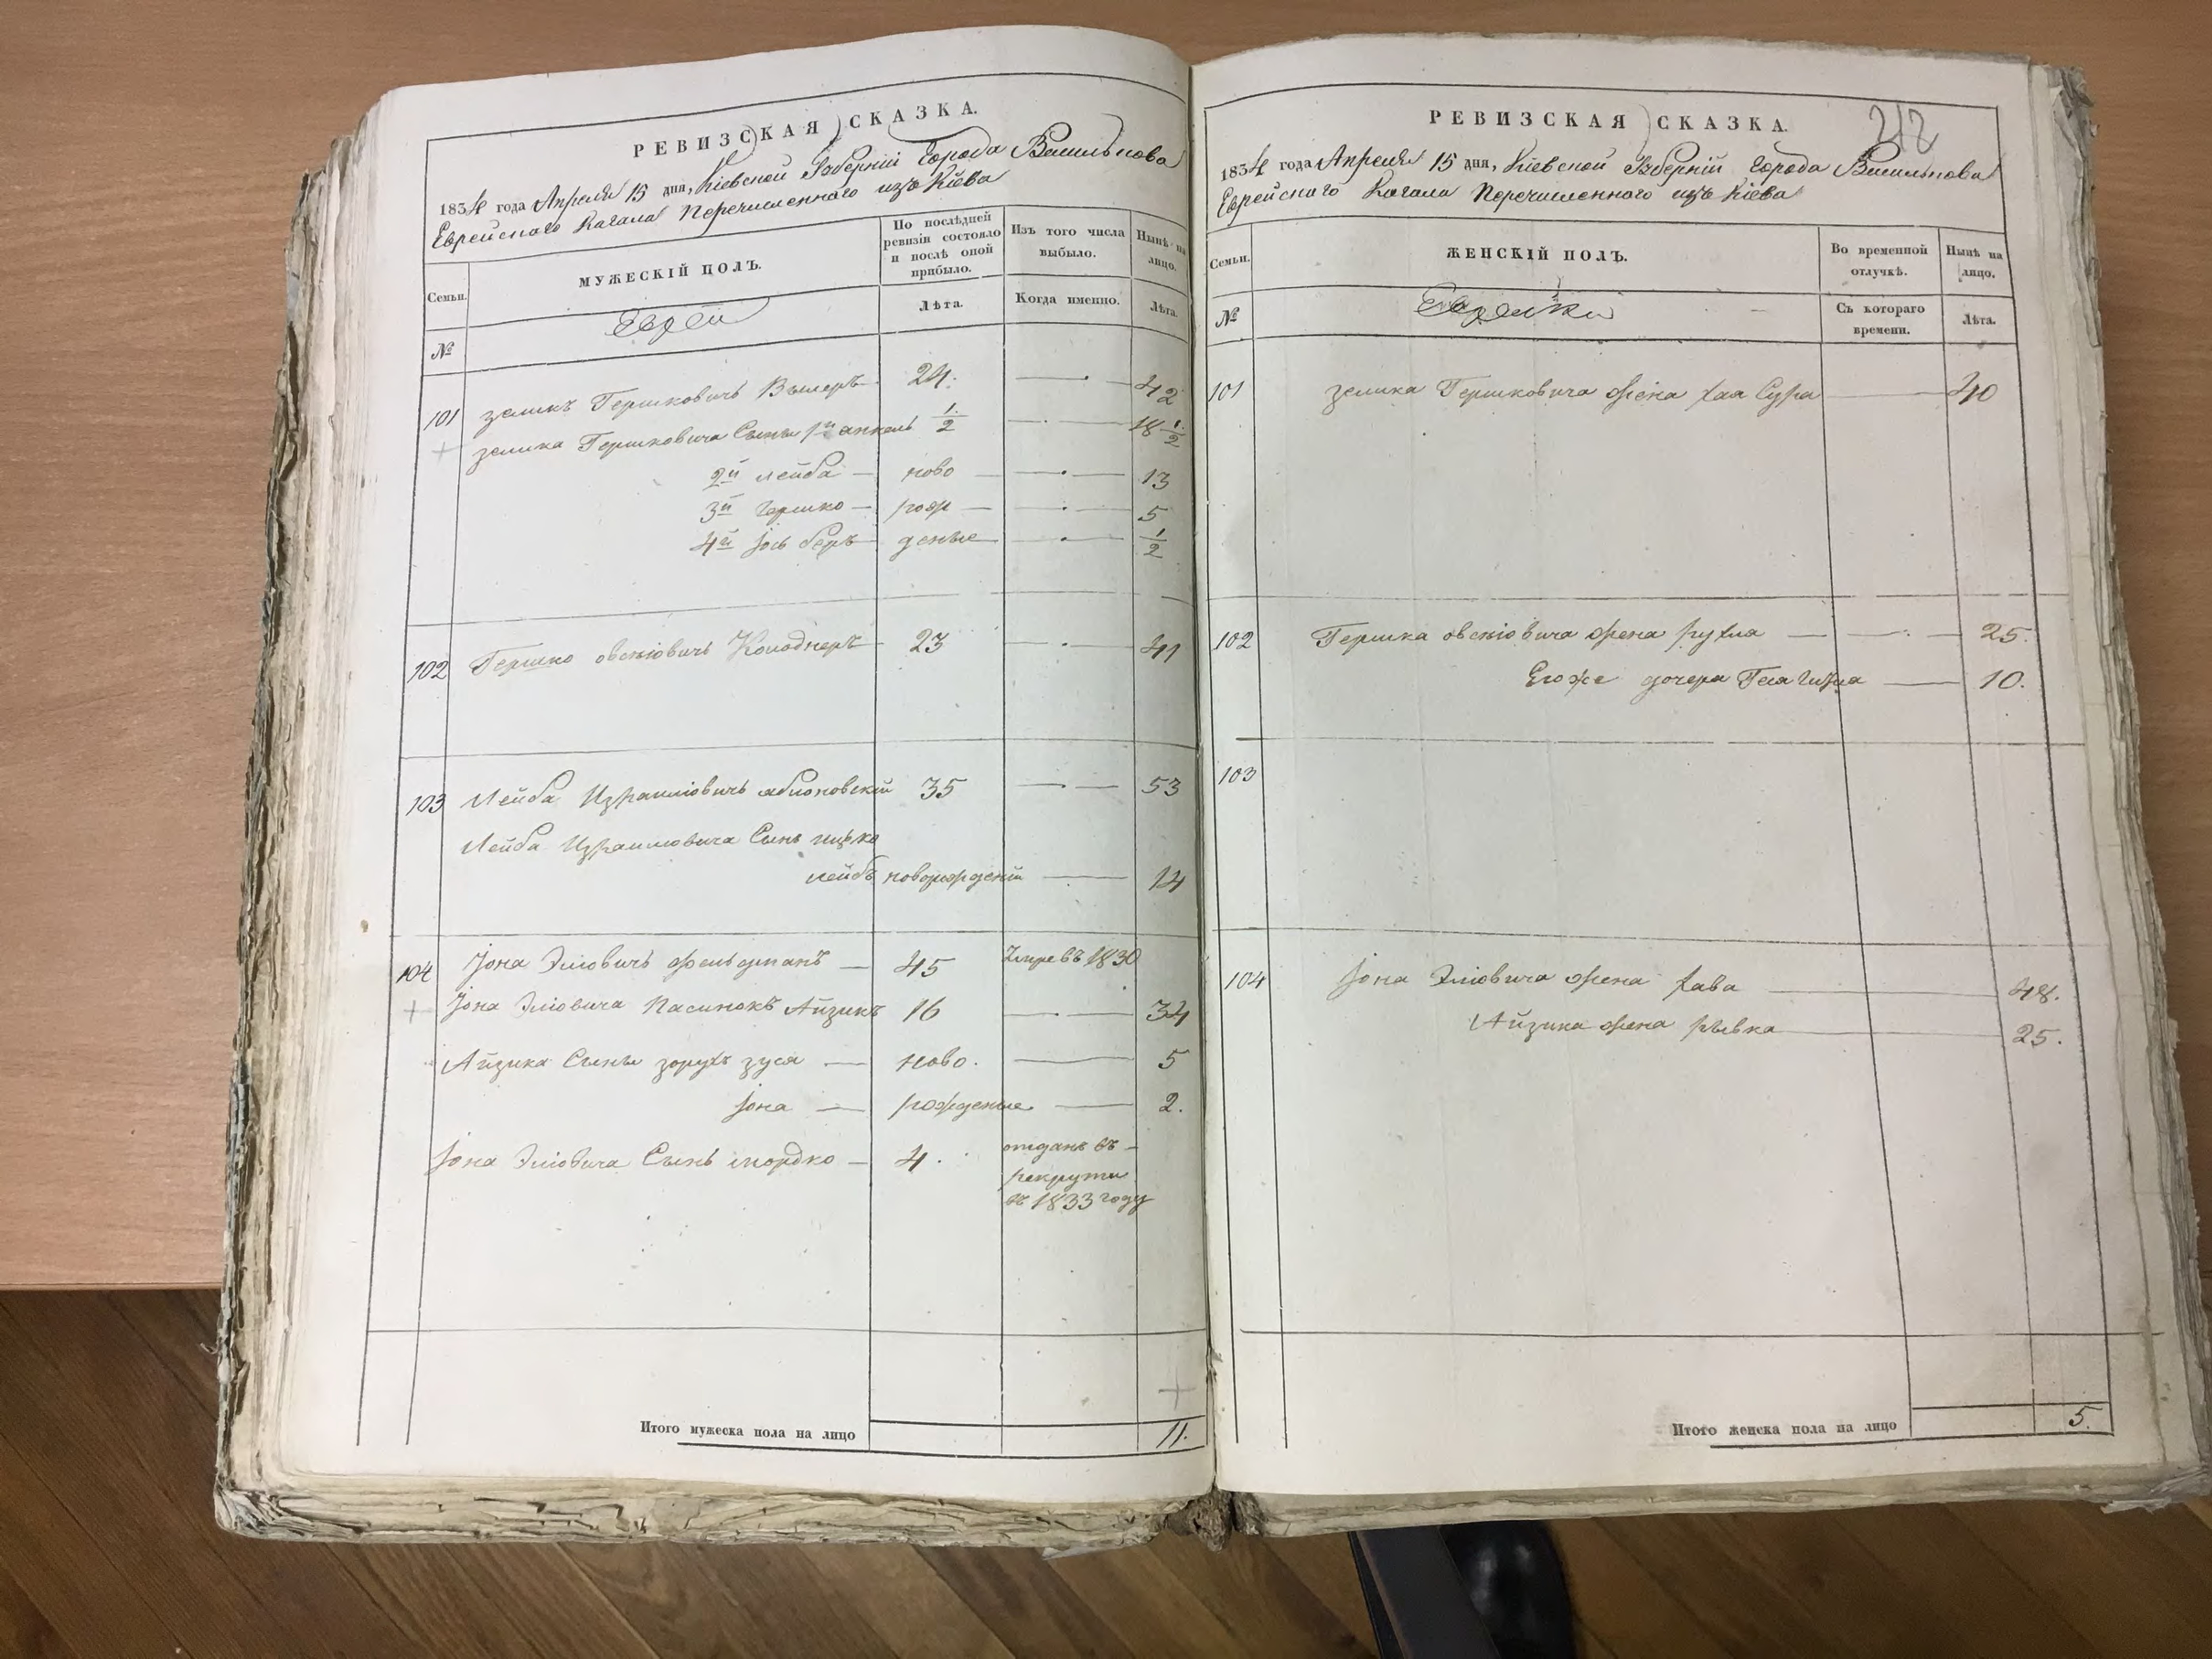 РЕВИЗСКАЯ СКАЗКА.
1834 года Апреля 15 дня, Кіевской Губерніи Города Василькова
Еврейскаго Кагала Перечисленнаго изъ Кіева
Семьи.
МУЖЕСКІЙ ПОЛЪ.
По послѣдней ревизіи состояло и послѣ оной прибыло.
Изъ того числа выбыло.
Нынѣ на лицо.
№
Евреи
Лѣта.
Когда именно.
Лѣта.
101 Зеликъ Гершковичъ 24. 42
Зелика Гершковича Сыны 1й 1/2 18 1/2
2й Лейба ново 13
3й Гершко рож 5
4й Іось Беръ деные 1/2
102 Гершко Овсіовичъ Колоднеръ 23 41
103 Лейба Израиліовичъ Яблоновскій 35 53
Лейба Израиліовича Сынъ
Лейбъ новорожденій 14
104 Іона Эліовичъ Фельдманъ 45 Умре въ 1830
Іона Эліовича Пасинокъ Айзикъ 16 34
Айзика Сыны Зорухъ Зуся ново. 5
Іона рожденые 2.
Іона Эліовича Сынъ Мордко 4. отданъ въ
рекруты
въ 1833 году
Итого мужеска пола на лицо 11.
РЕВИЗСКАЯ СКАЗКА.
212
1834 года Апреля 15 дня, Кіевской Губерніи Города Василькова
Еврейскаго Кагала Перечисленнаго изъ Кіева
Семьи.
ЖЕНСКІЙ ПОЛЪ.
Во временной отлучкѣ.
Нынѣ на лицо.
№
Еврейки
Съ котораго времени.
Лѣта.
101 Зелика Гершковича жена Хая Сура 40
102 Гершка Овсіовича жена Рухля 25.
Егоже дочера 10.
103
104 Іона Эліовича жена Хава 48.
Айзика жена Рывка 25.
Итого женска пола на лицо 5.